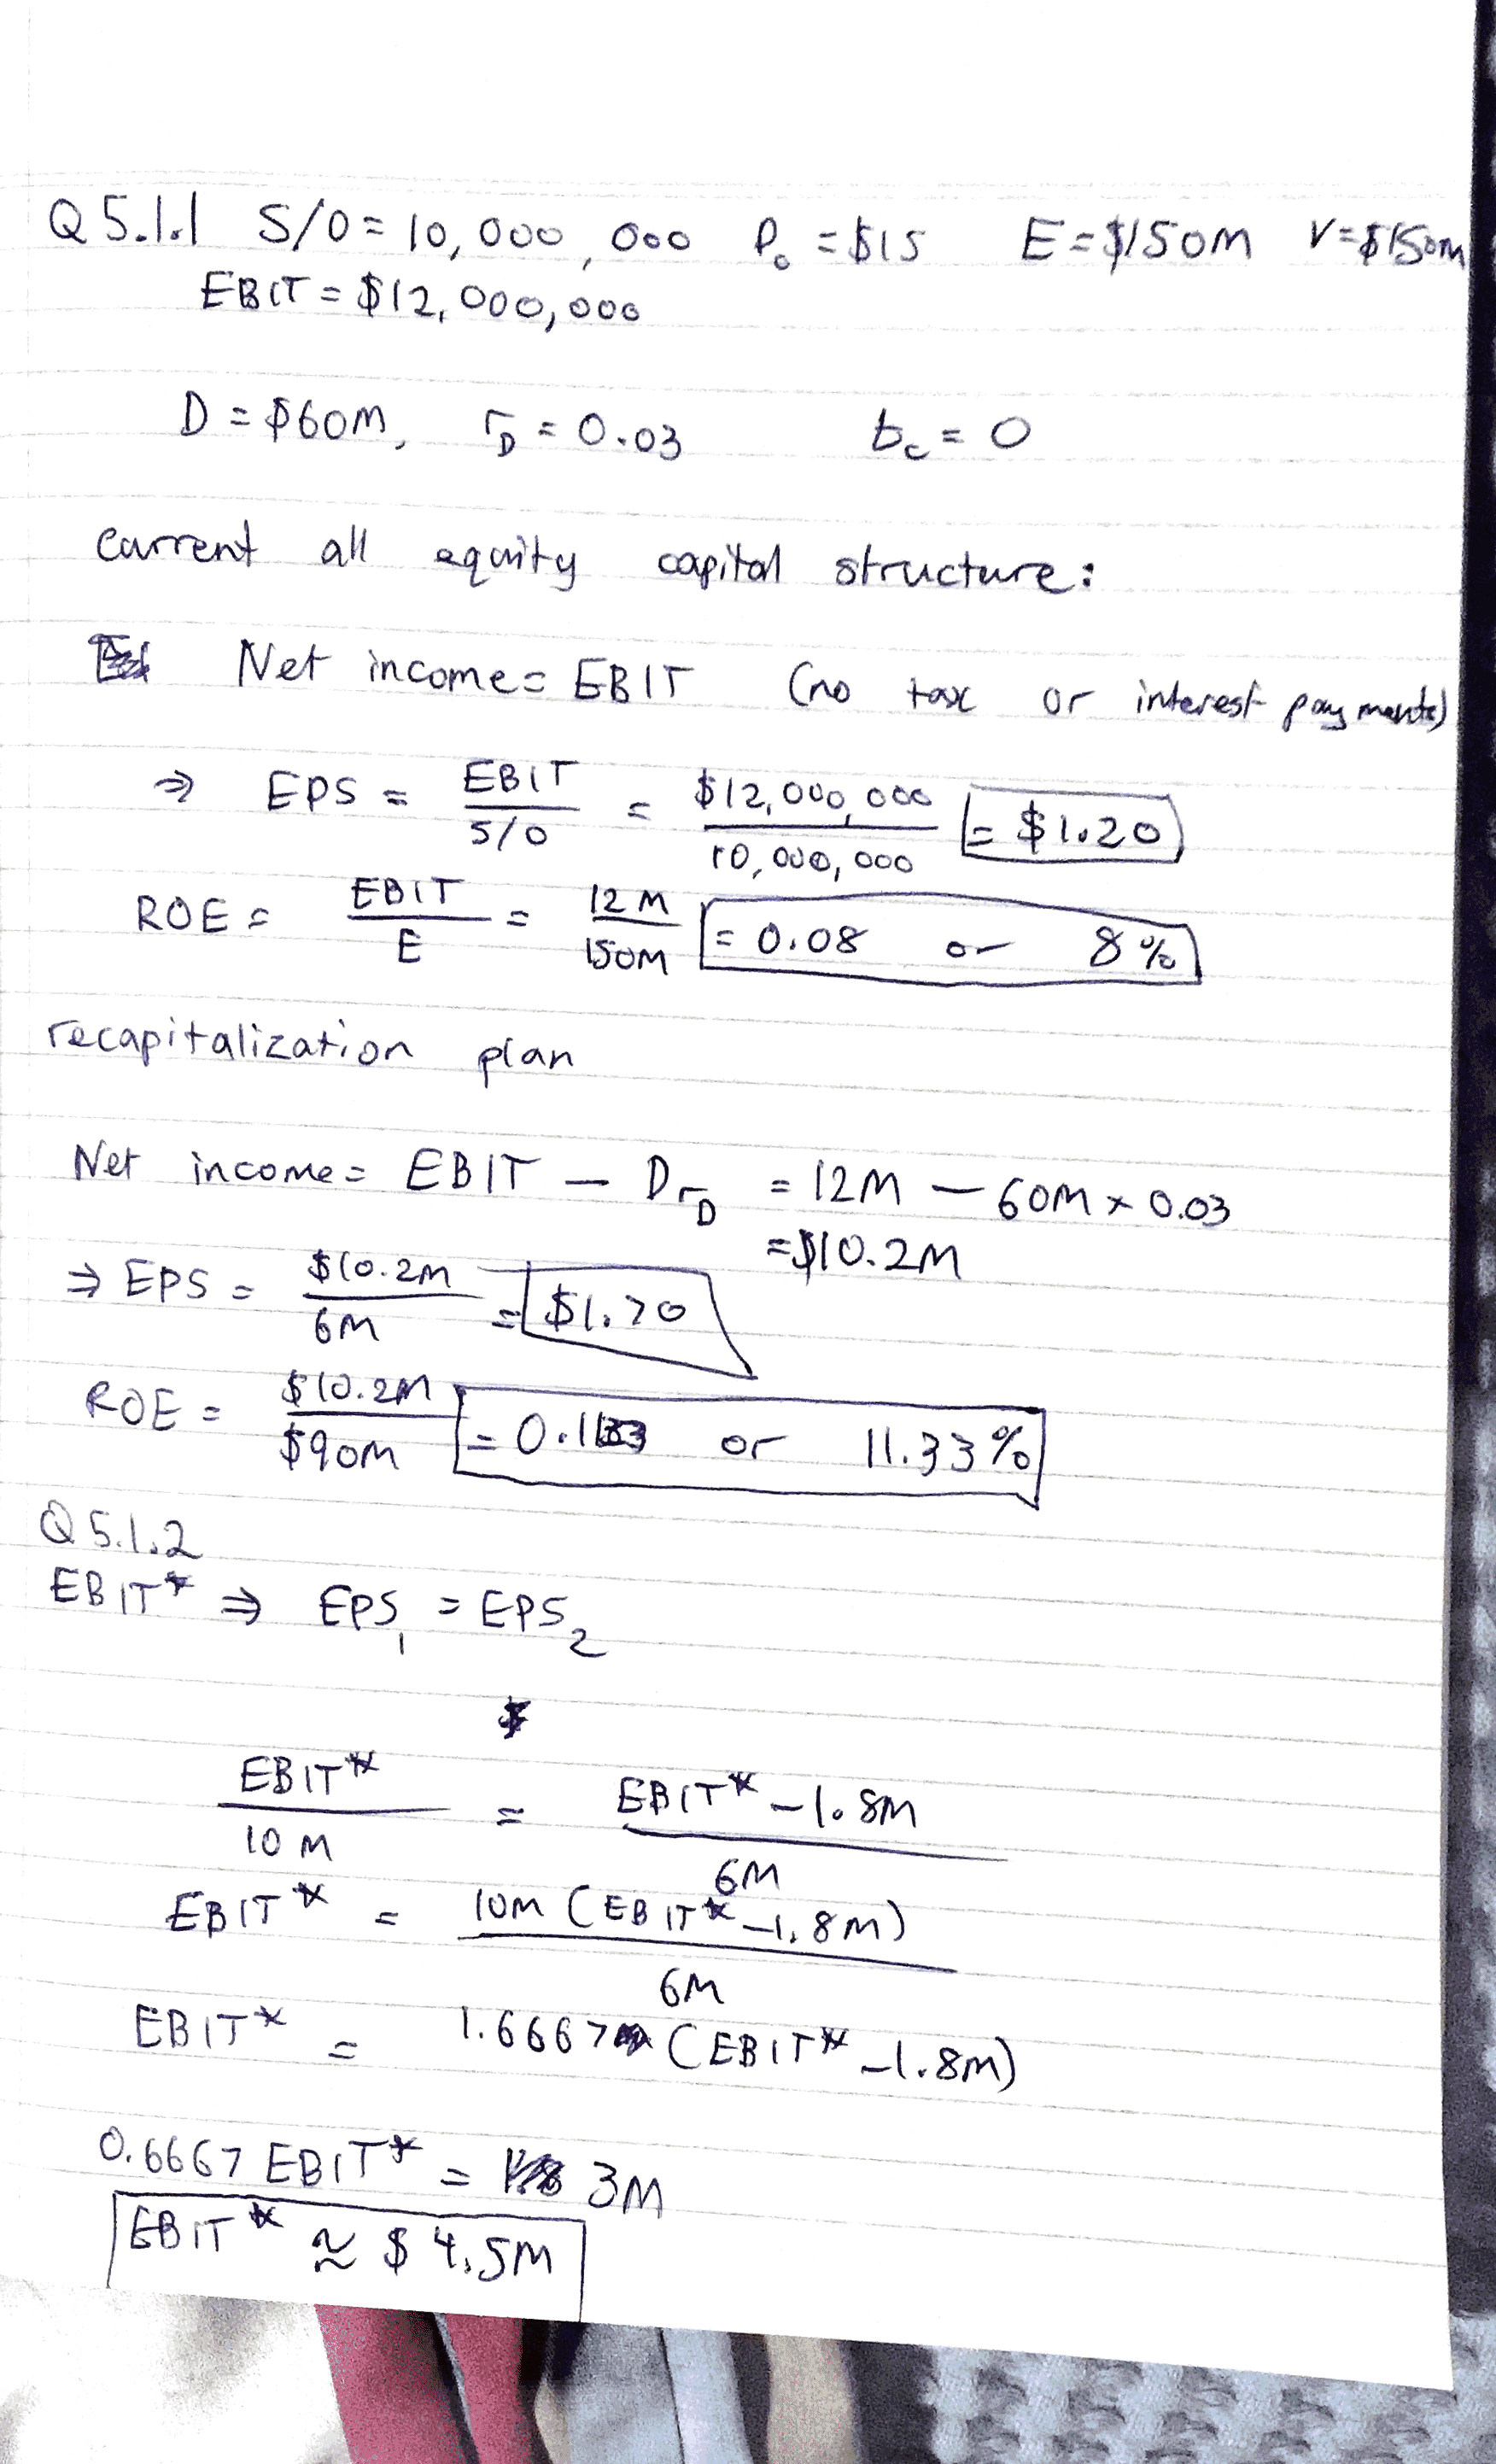 Q 5.1.1 S/O = 10,000,000 P₀ = $15 E = $150M V = $150M
EBIT = $12,000,000
D = $60M, r_D = 0.03 t_c = 0
current all equity capital structure:
Net income = EBIT (no tax or interest payments)
⇒ EPS = EBIT / S/O = $12,000,000 / 10,000,000 = $1.20
ROE = EBIT / E = 12M / 150M = 0.08 or 8%
recapitalization plan
Net income = EBIT – D r_D = 12M – 60M × 0.03
= $10.2M
⇒ EPS = $10.2M / 6M = $1.70
ROE = $10.2M / $90M = 0.1133 or 11.33%
Q 5.1.2
EBIT* ⇒ EPS₁ = EPS₂
EBIT* / 10M = EBIT* – 1.8M / 6M
EBIT* = 10M (EBIT* – 1.8M) / 6M
EBIT* = 1.6667 (EBIT* – 1.8M)
0.6667 EBIT* = 3M
EBIT* ≈ $4.5M